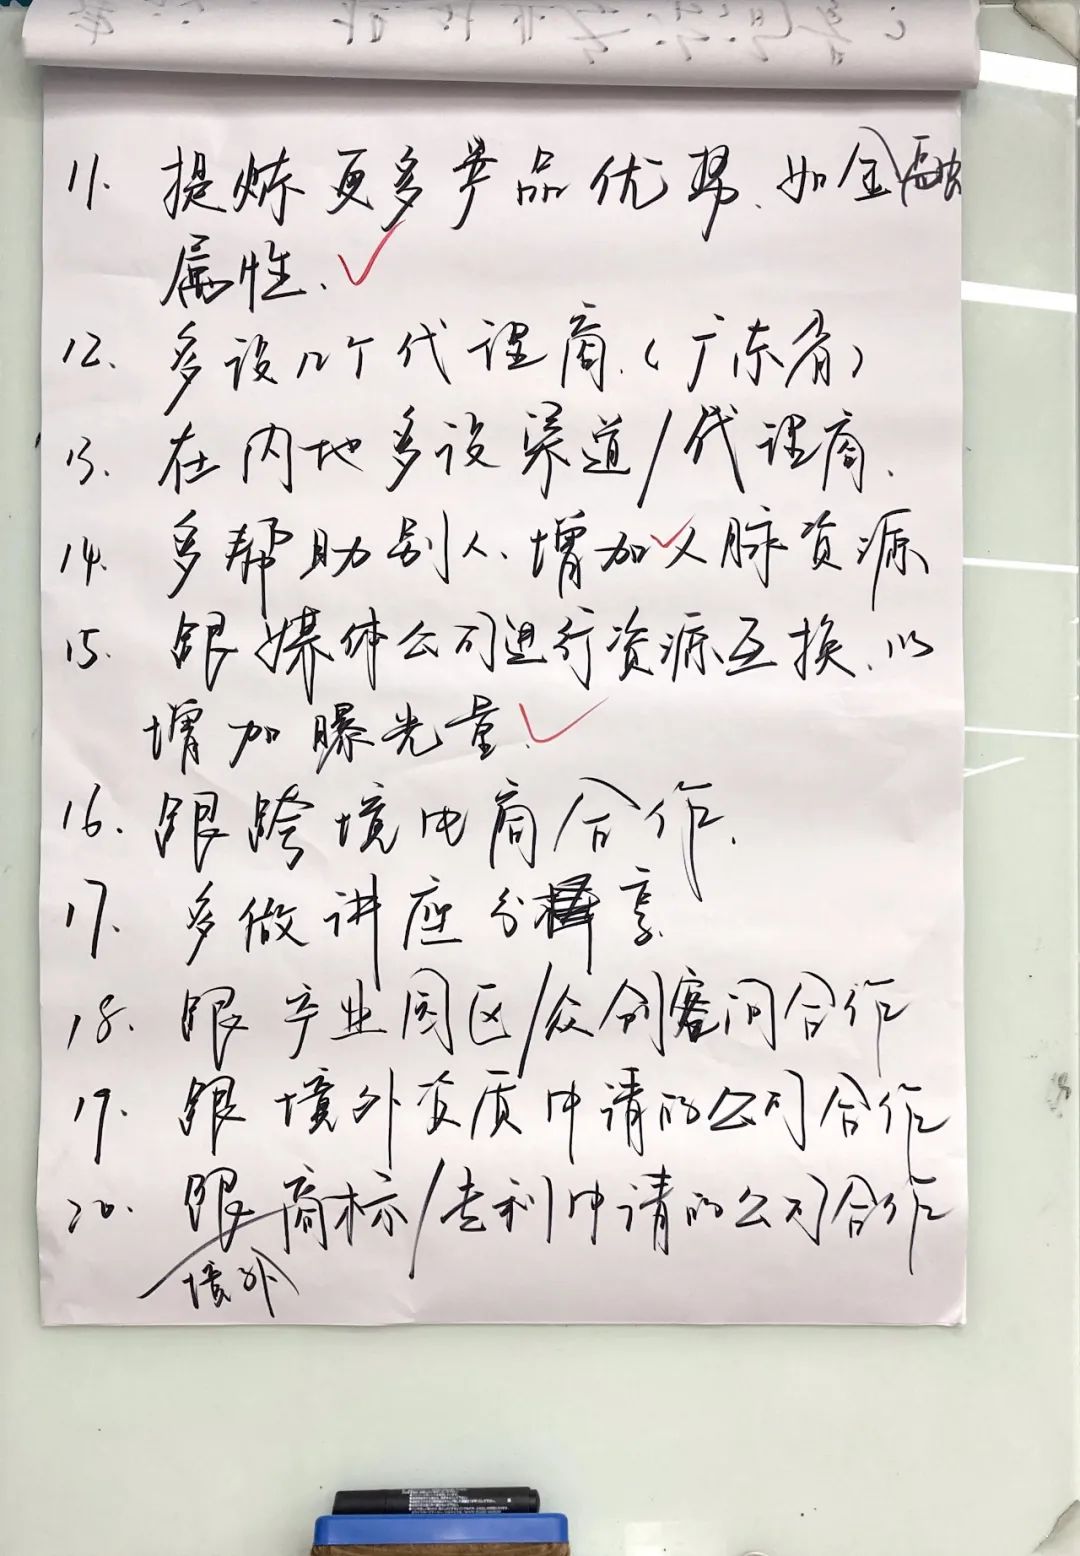 11. 提炼更多产品优势、如金融
属性.
12. 多设几个代理商.(广东省)
13. 在内地多设渠道/代理商.
14. 多帮助别人、增加人脉资源
15. 跟媒体公司进行资源互换、以
增加曝光量.
16. 跟跨境电商合作.
17. 多做讲座分享
18. 跟产业园区/众创客间合作
19. 跟境外资质申请的公司合作
20. 跟商标/专利申请的公司合作
境外